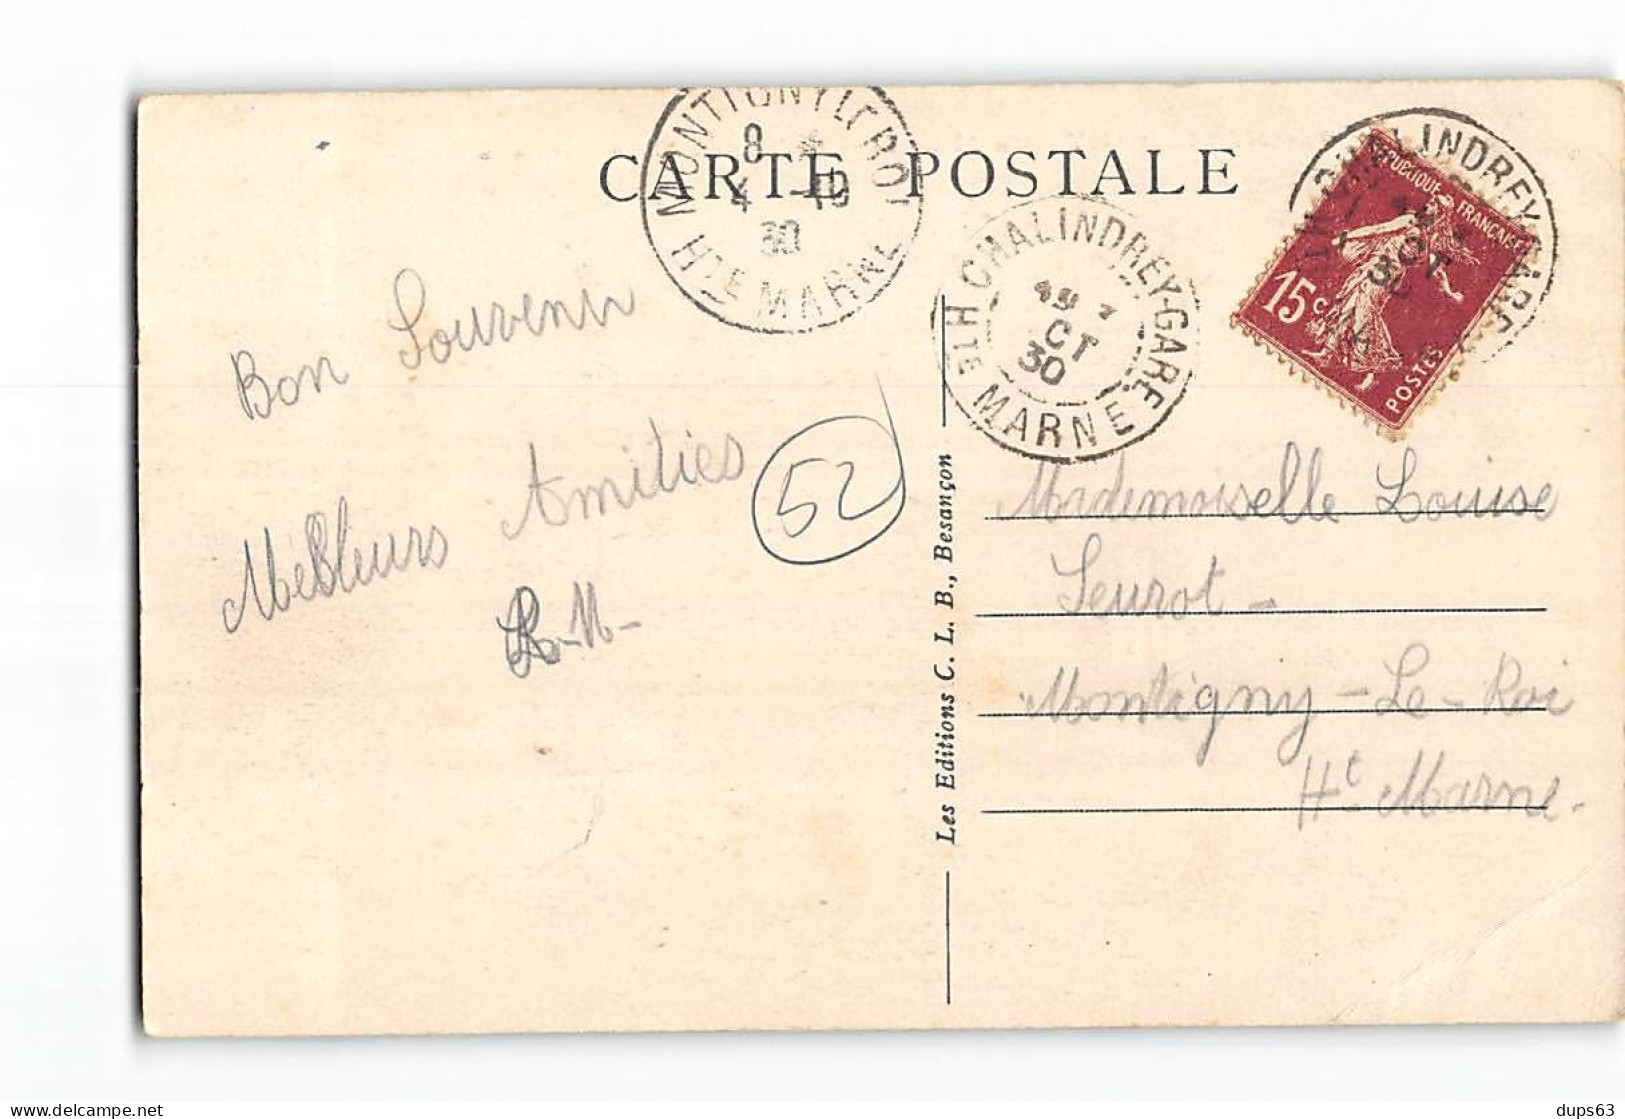 CARTE POSTALE
MONTIGNY-LE-ROI
8
4 -10
30
Hte MARNE
CHALINDREY-GARE
OCT
30
Hte MARNE
CHALINDREY-GARE
OCT
30
RÉPUBLIQUE FRANÇAISE
15c
POSTES
Bon Souvenir
Meilleurs Amitiés
L-M-
52
Les Editions C. L. B., Besançon
Mademoiselle Louise
Seurot -
Montigny - Le - Roi
Hte Marne -
dups63